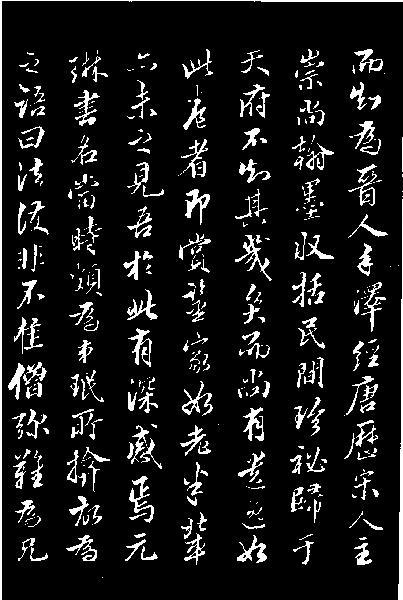 而知為晉人手澤經唐歷宋人主
崇尚翰墨收括民間珍祕歸于
天府不知其幾矣而尚有遺逸如
此卷者即賞鑒家如老米輩
亦未之見吾於此有深感焉元
琳書名當時頗為弟珉所擠故為
之語曰法護非不佳僧彌難為兄